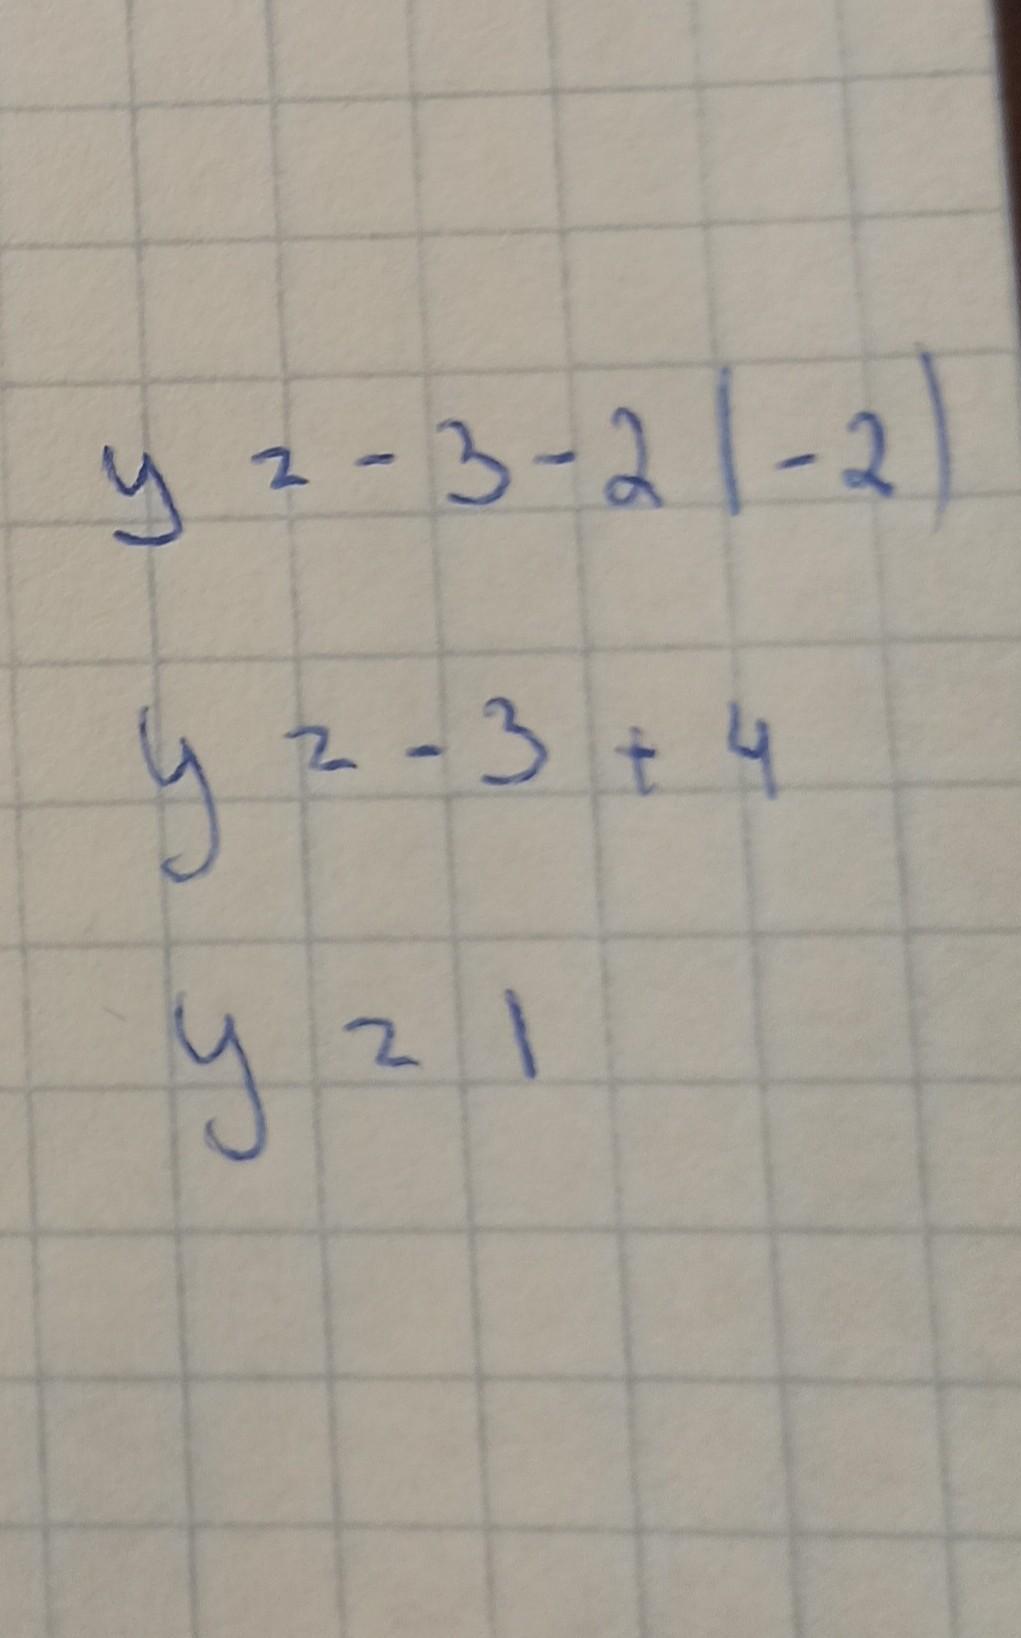 y = -3 - 2|-2|
y = -3 + 4
y = 1